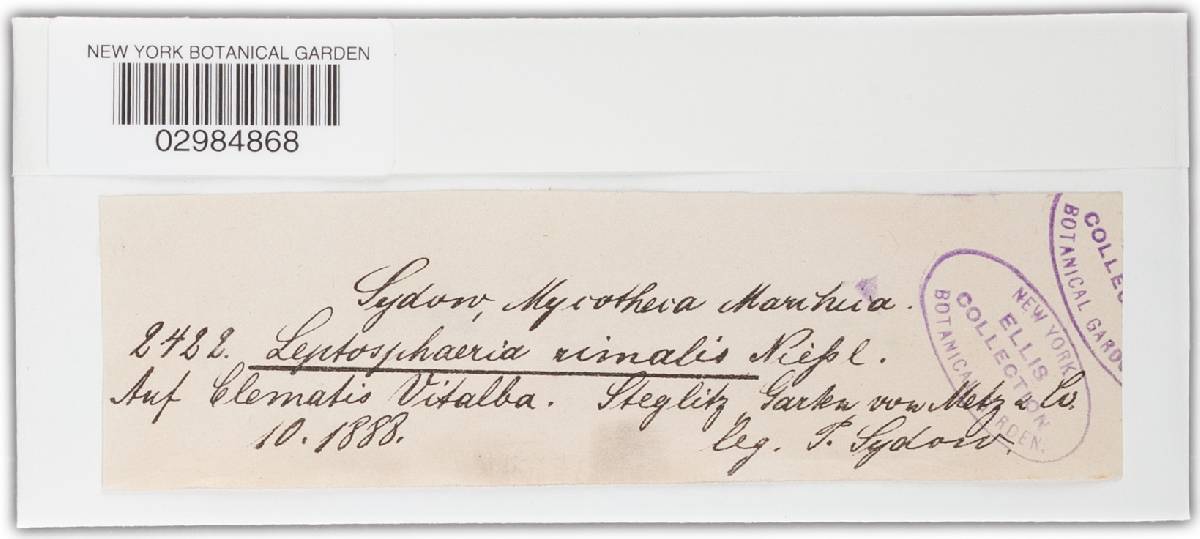 NEW YORK BOTANICAL GARDEN
02984868
Sydow, Mycotheca Marchica.
2422. Leptosphaeria rimalis Nießl.
Auf Clematis Vitalba. Steglitz, Garten von Metz & Co.
10. 1888. leg. P. Sydow.
NEW YORK
ELLIS
COLLECTION
BOTANICAL GARDEN.
COLLEC
BOTANICAL GARDE